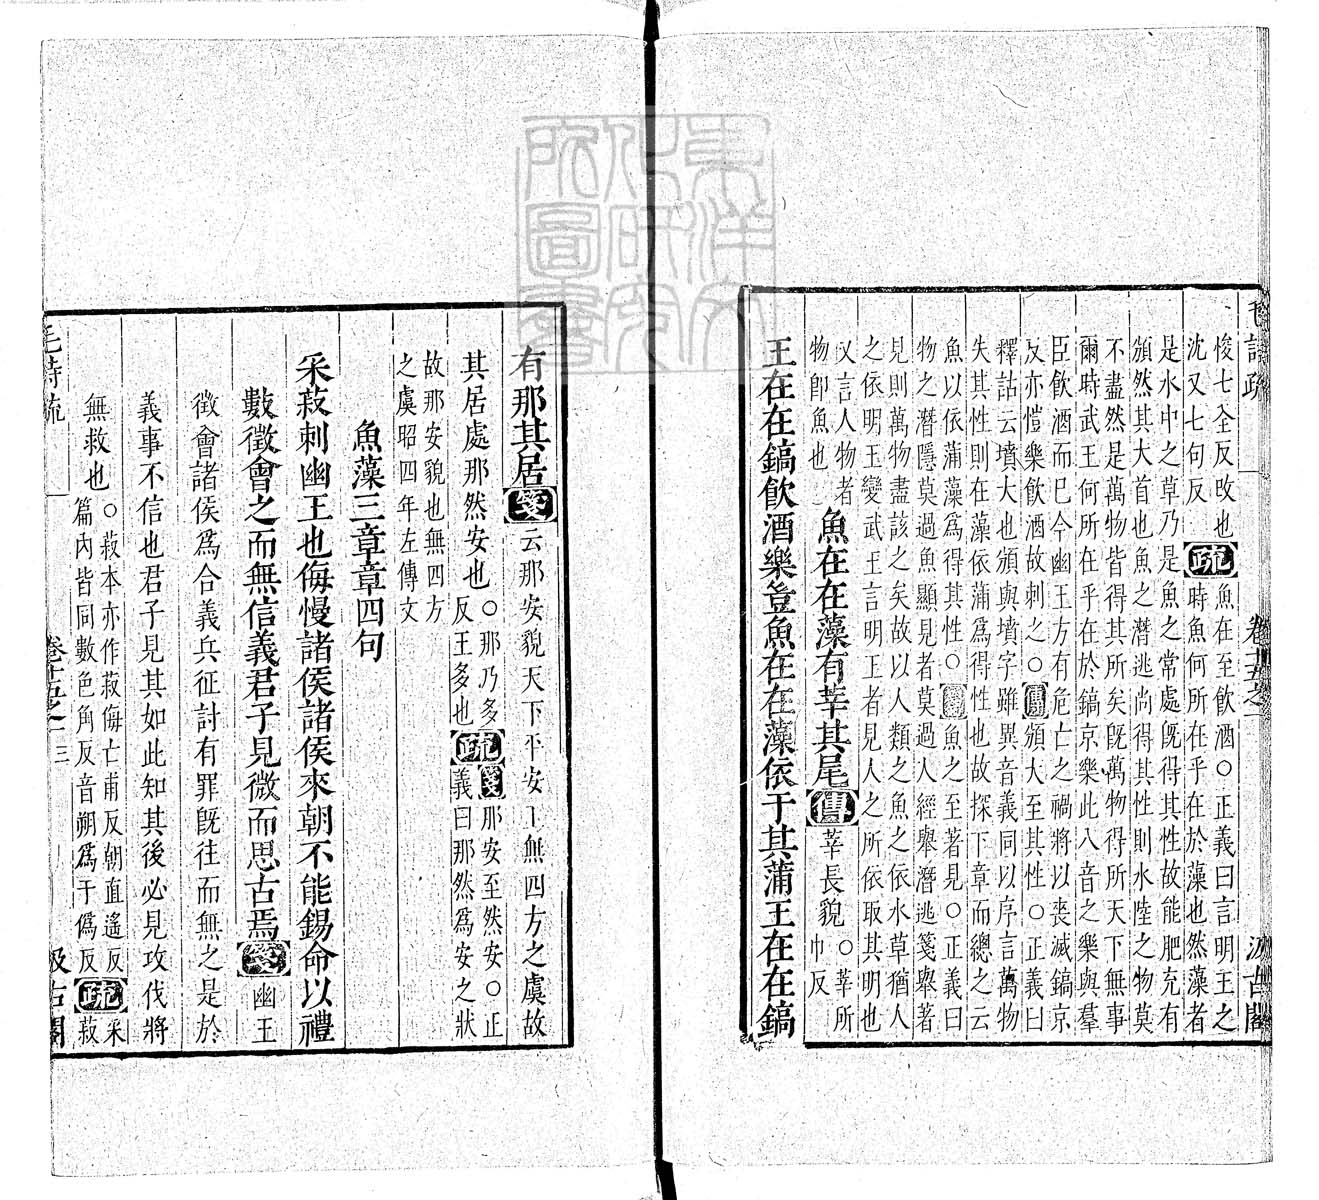 毛詩疏　卷十五之一　汲古閣
悛七全反改也
沈又七句反
疏
魚在至飲酒○正義曰言明王之
時魚何所在乎在於藻也然藻者
是水中之草乃是魚之常處旣得其性故能肥充有
頒然其大首也魚之潛逃尚得其性則水陸之物莫
不盡然是萬物皆得其所矣旣萬物得所天下無事
爾時武王何所在乎在於鎬京樂此八音之樂與羣
臣飲酒而巳今幽王方有危亡之禍將以喪滅鎬京
反亦愷樂飲酒故刺之○傳頒大至其性○正義曰
釋詁云墳大也頒與墳字雖異音義同以序言萬物
失其性則在藻依蒲爲得性也故探下章而總之云
魚以依蒲藻爲得其性○箋魚之至著見○正義曰
物之潛隱莫過魚顯見者莫過人經舉潛逃箋舉著
見則萬物盡該之矣故以人類之魚之依水草猶人
之依明王變武王言明王者見人之所依取其明也
又言人物者
物卽魚也
魚在在藻有莘其尾傳莘長貌○莘所巾反
王在在鎬飲酒樂豈魚在在藻依于其蒲王在在鎬
有那其居箋云那安貌天下平安王無四方之虞故
其居處那然安也○那乃多反王多也疏箋那安至然安○正義曰那然爲安之狀
故那安貌也無四方
之虞昭四年左傳文
魚藻三章章四句
采菽刺幽王也侮慢諸侯諸侯來朝不能錫命以禮
數徵會之而無信義君子見微而思古焉箋幽王
徵會諸侯爲合義兵征討有罪旣往而無之是於
義事不信也君子見其如此知其後必見攻伐將
無救也○菽本亦作菽侮亡甫反朝直遙反
篇內皆同數色角反音朔爲于僞反疏采菽
毛詩疏　卷十五之一　三　汲古閣